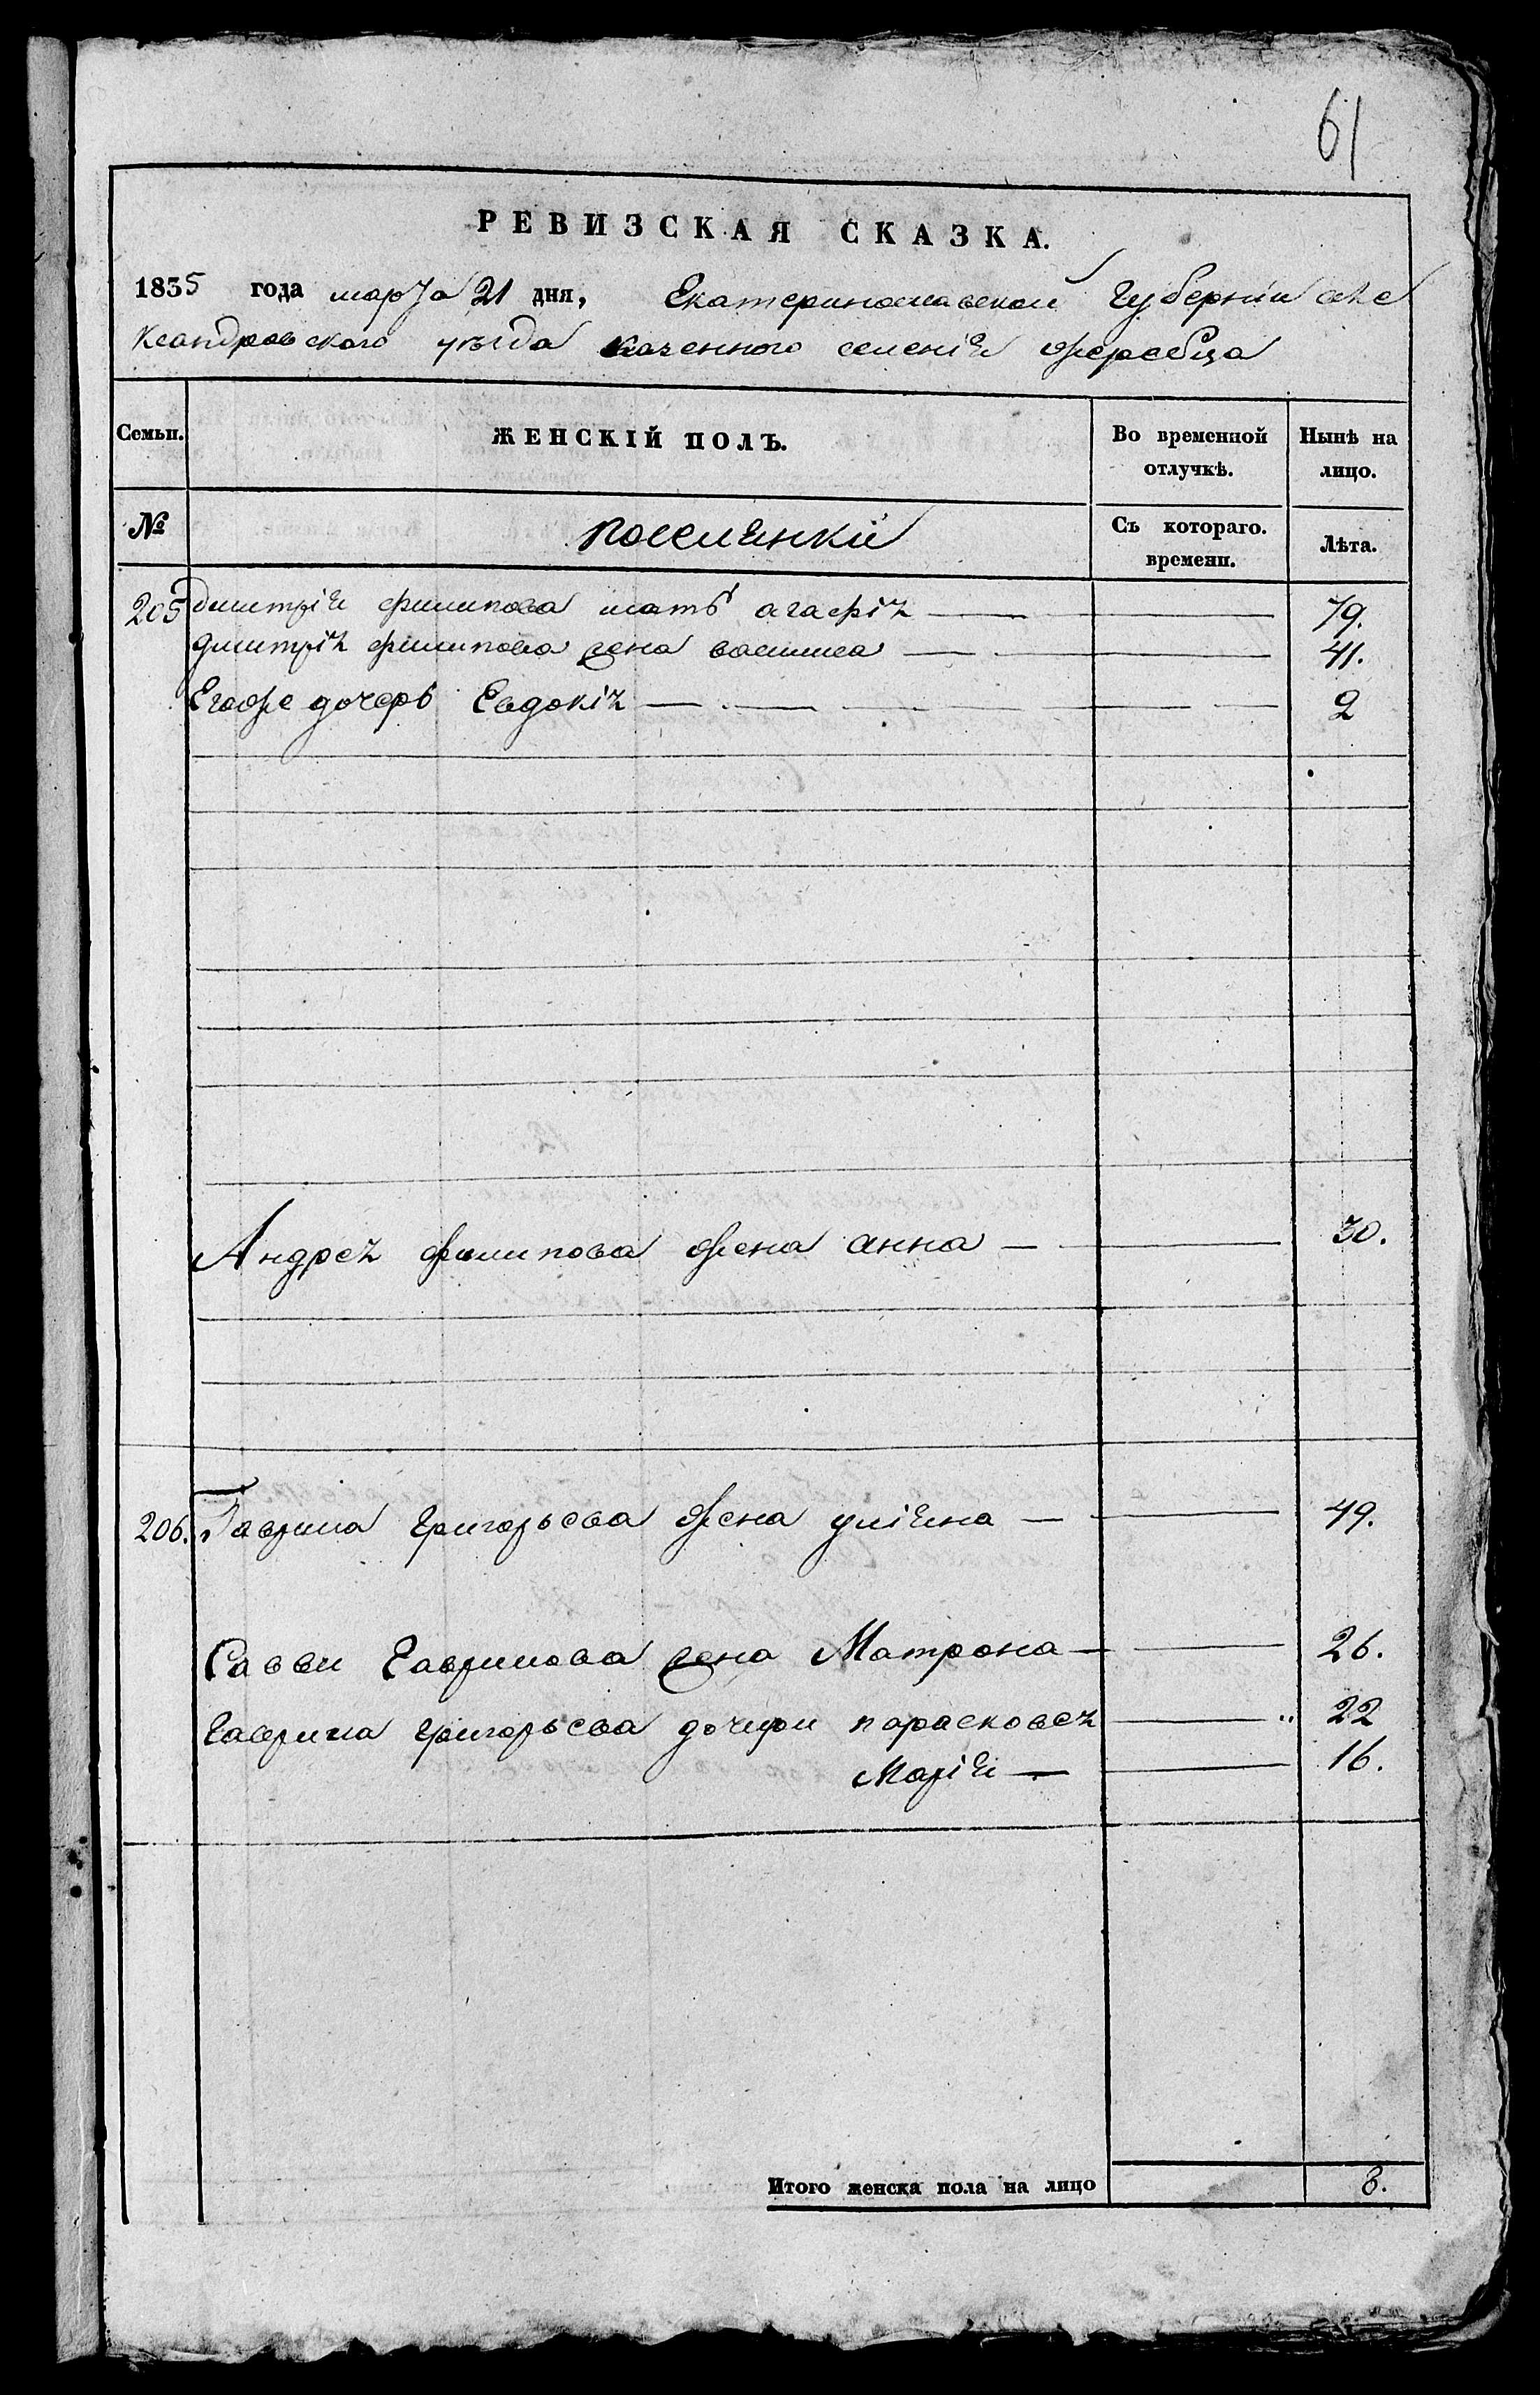 61
РЕВИЗСКАЯ СКАЗКА.
1835 года марта 21 дня, Екатеринославской Губернии але
ксандровского уезда казенного селения жеребца
Семьи. ЖЕНСКІЙ ПОЛЪ. Во временной отлучкѣ. Нынѣ на лицо.
№ поселянки Съ котораго. времени. Лѣта.
205 дмитрія филипова мать агафія — 79.
дмитрія филипова жена василиса — 41.
Егоже дочерь Евдокія — 2
Андрея филипова жена анна — 30.
206. Гаврила григорьева жена улияна — 49.
Савви гаврилова жена Матрона — 26.
гаврила григорьева дочери парасковея — 22
Марія — 16.
Итого женска пола на лицо 8.